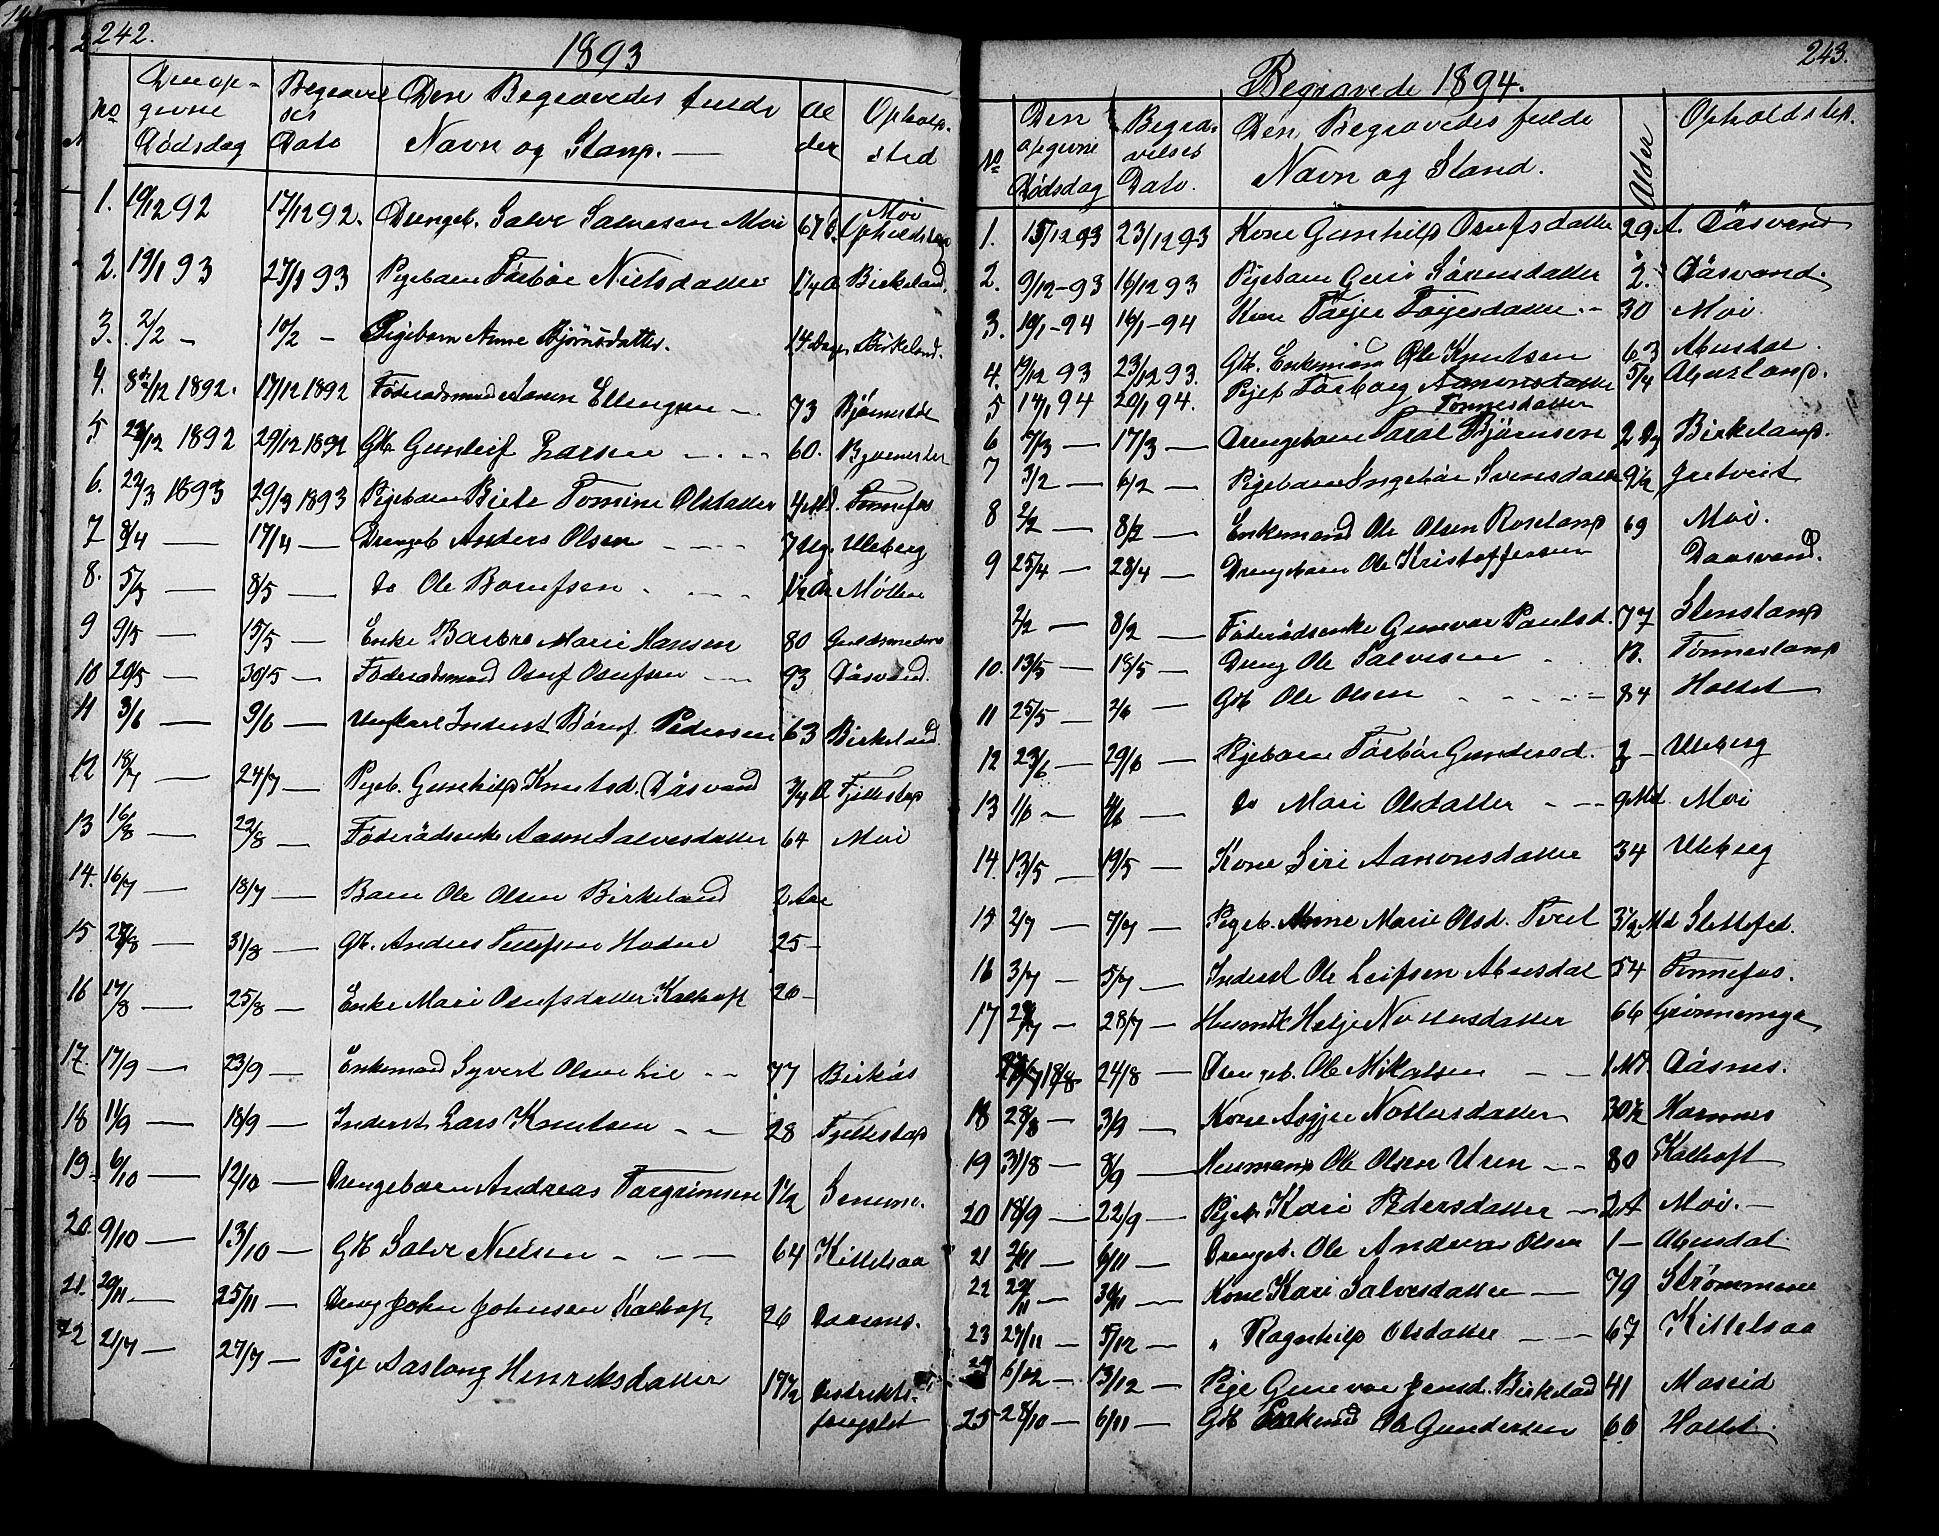 242.
1893
No Den op-givne Dødsdag Begravelses Dato Den Begravedes fulde Navn og Stand. Alder Opholdssted
1. 10/12 92 17/12 92. Drengeb. Salve Salvesen Moi Moi Opholdssted
2. 19/1 93 27/1 93 Pigebarn Torbør Nielsdatter 1 1/4 A Birkeland.
3. 2/2 - 10/2 - Pigebarn Anne Bjørnsdatter. 14 Dage Birkeland.
4. 8de/12 1892. 17/12 1892 Føderaadsmand Ellingsen - 73
5 29/12 1892 Gbr Gunleif Larsen - . - 60.
6. 22/3 1893 29/3 1893 Pigebarn Birte Tomine Olsdatter 4 Md. Tonnefos
7 9/4 - 17/4 - Drengeb Anders Olsen - - - 7 Ug. Uleberg
8. 5/5 - 8/5 - do Ole 1 1/2 Aar Møllen
9 9/5 - 15/5 - Enke Barbro Marie Hansen 80
10 20/5 - 30/5 - Føderaadsmand Osuf Osufsen - - 93 Dåsvand.
11 3/6 - 9/6 - Ungkarl Inderst Pedersen 63 Birkeland.
12 18/7 - 24/7 - Pigeb. Gunhild Knutsd. Dåsvand 3/4 A Fjellestad
13 16/8 - 22/8 - Føderådsenke Aasne Salvesdatter 64 Moi
14. 16/7 - 18/7 - Barn Ole Olsen Birkeland 2 Aar
15 31/8 - Gbr. Anders Tellefsen Hodne 25 -
16 17/8 - 25/8 - Enke Mari Osufsdatter Kalhoft 26 -
17. 17/9 - 23/9 - Enkemand Syvert Olsen Lie - - 77 Birkås
18 11/9 - 18/9 - Inderst Lars Knutsen - - 28 Fjellestad
19. 6/10 - 12/10 - Drengebarn Andreas Torgrimsen 1 1/2 Senum.
20. 9/10 - 13/10 - Gbr Salve Nielsen - - - 64 Kittelsaa
21. 20/11 - 25/11 - Dreng John Johnsen Kalhoft 26
22 21/7 - 27/7 - Pige Aaslaug Henriksdatter 17 1/2 Distrikts-fængslet
243.
Begravede 1894.
No Den opgivne Dødsdag Begravelses Dato. Den Begravedes fulde Navn og Stand. Alder Opholdsted.
1. 15/12 93 23/12 93 Kone Gunhild Osufsdatter 29 A. Dåsvand
2. 9/12 - 93 16/12 93 Pigebarn Guri Sørensdatter 2. Dåsvand.
3. 10/1 - 94 16/1 - 94 Kone Torjer Torjesdatter. - 30 Moi.
4. 93 23/12 93. Gbr. Enkemand Ole Knutsen 63 Abusdal.
5 14/1 94 20/1 94. Pigeb Torborg Aanonsdatter 5/4 Abusland.
Tonnesdatter
6 7/3 - 17/3 - Drengebarn Bjørnsen 2 Dg Birkeland.
7 3/2 - 6/2 - Pigebarn Ingebør Svensdatter 9 1/2 Gretveit
8 2/2 - 8/2 - Enkemand Ole Olsen Roseland 69 Moi.
9 25/4 - 28/4 - Drengbarn Ole Kristoffersen Daasvand.
2/2 - 8/2 - Føderådsenke Gunvor Paulsd. 77 Stensland
10. 13/5 - 18/5 - Dreng Ole Salvesen . 13. Tønnesland
11 25/5 - 2/6 - Gbr Ole Olsen - - - - 84 Holtet
12 23/6 - 29/6 - Pigebarn Torbør Gundersd. - Uleberg
13 1/6 - 4/6 - do Mari Olsdatter - - 9 Md. Moi
14. 13/5 - 19/5 - Kone Siri Aanonsdatter 34 Uleberg
15 2/7 - 7/7 - Pigeb. Anne Marie Olsd. Tveit 3 1/2 Md Slettefed.
16 3/7 - 5/7 - Inderst Ole Leifsen Abusdal 54 Tonnefos.
17 - 28/7 - Husmk Helje Nottosdatter 66
18/8 24/8 - Drengeb. Ole Mikalsen - - 1 Md. Dåsnes.
18 28/8 - 3/9 - Kone Asgjer Nottosdatter 30 1/2 Harnnes
19 31/8 - 8/9 - Husmand Ole Olsen Uren - - 80 Kalhoft
20 18/9 - 22/9 - Pigeb Kari Pedersdatter - 2 A Moi. -
21 2/11 - 6/11 - Drengeb. Ole Andreas Olsen 1 - Abusdal
22 22/11 - 30/11 - Kone Kari Salvesdatter - 79 Strømmene
23 27/11 - 5/12 - " Ragnhild Olsdatter - 67 Kittelsaa
24 6/12 - 13/12 - Pige Gunvor Jensd. Birkeland 41 Moseid
25 28/10 - 6/11 - Gbr Enkemd Ole Gundersen 66 Holtet.